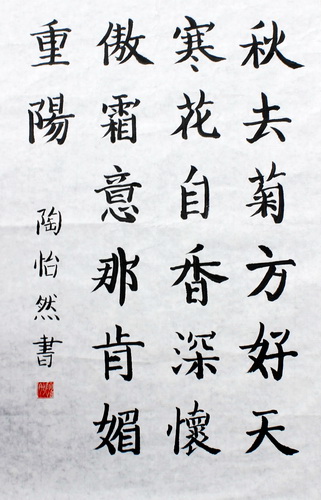 秋去菊方好天
寒花自香深懷
傲霜意那肯媚
重陽
陶怡然書